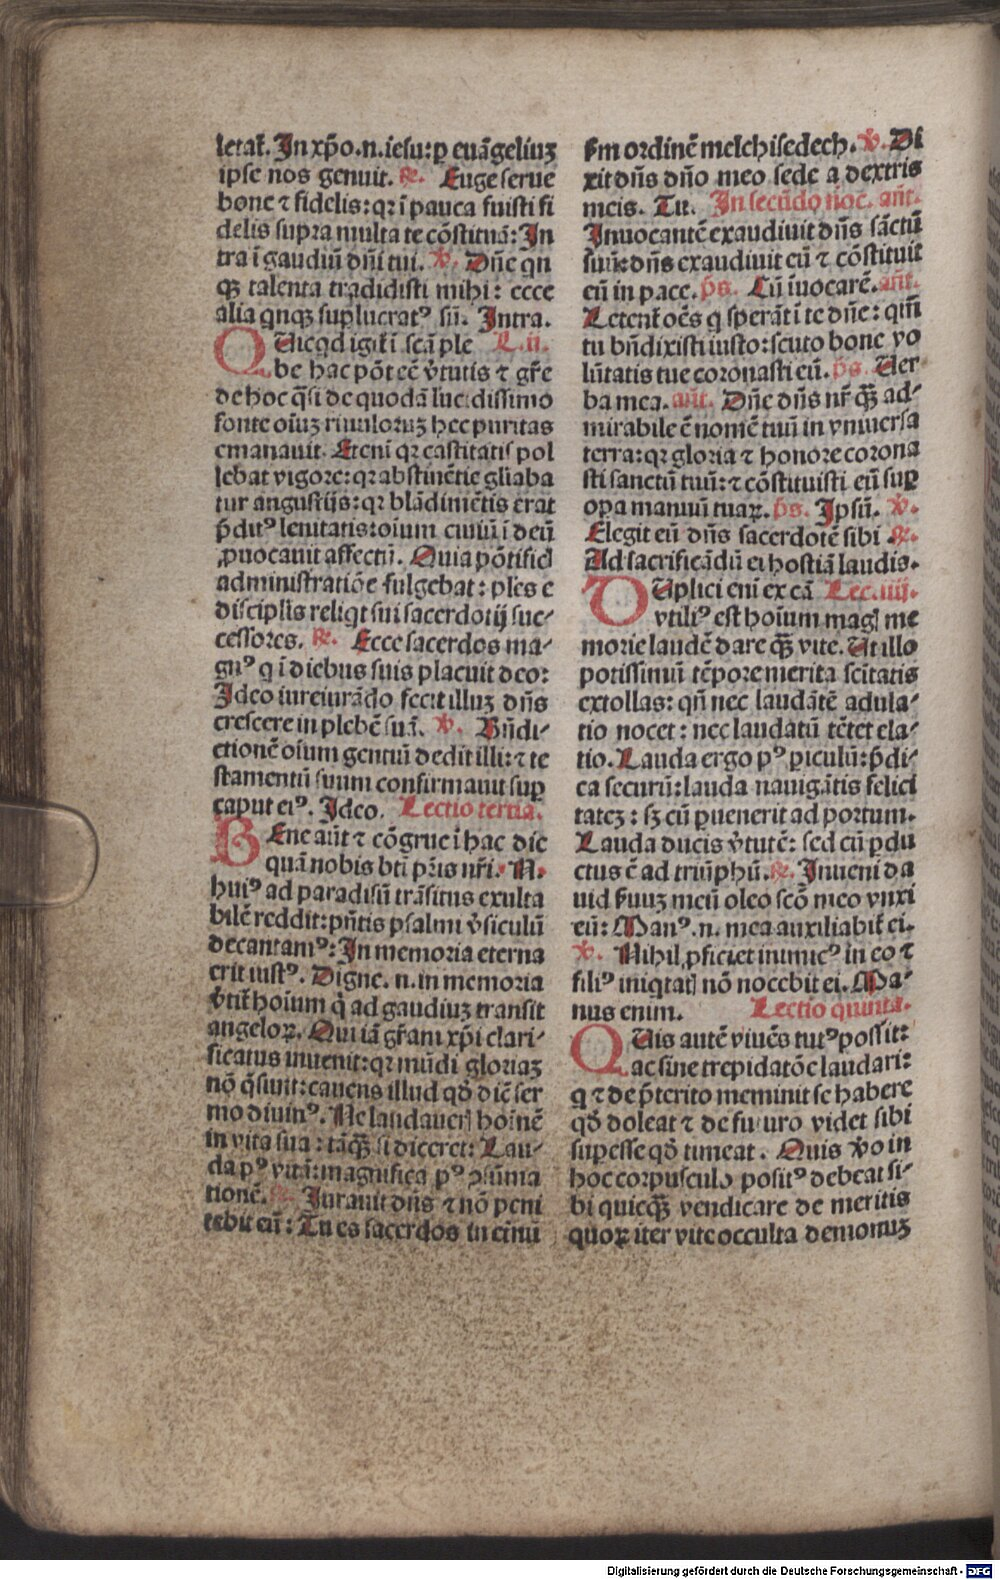 letat᷑. In xp̄o.n.iesu:ꝑ euāgeliuꝫ
ipse nos genuit. ℟. Euge serue
bone ⁊ fidelis:qꝛ ī pauca fuisti fi
delis supra multa te cōstituā: In
tra ī gaudiū dn̄i tui. ℣. Dn̄e qn
qꝫ talenta tradidisti mihi: ecce
alia qnqꝫ suꝑlucratꝰ sū. Intra.
QUicqd igit᷑ ī scā ple L.ii.
be hac pōt eē v̄tutis ⁊ gr̄e
de hoc q̄si de quodā lucidissimo
fonte oīuꝫ riuuloruꝫ hec puritas
emanauit. Etenī qꝛ castitatis pol
lebat vigore:qꝛ abstinētie gl̄iaba
tur angustijs:qꝛ blādimētis erat
p̄ditꝰ lenitatis:oīum ciuiū ī deū
ꝓuocauit affectū. Quia pōtificij
administratiōe fulgebat: ples e
disciplis reliqt sui sacerdotij suc-
cessores. ℟. Ecce sacerdos ma-
gnꝰ q ī diebus suis placuit deo:
Ideo iureiurādo fecit illuꝫ dn̄s
crescere in plebē suā. ℣. Bn̄di-
ctionē oīum gentiū dedit illi:⁊ te
stamentū suum confirmauit suꝑ
caput eiꝰ. Ideo. Lectio tertia.
BEne aūt ⁊ cōgrue ī hac die
quā nobis bt̄i pr̄is nr̄i. N.
huiꝰ ad paradisū trāsitus exulta
bilē reddit:pn̄tis psalmi v̄siculū
decantamꝰ: In memoria eterna
erit iustꝰ. Digne.n.in memoriā
v̄tit᷑ hoīum q̄ ad gaudiuꝫ transit
angeloꝝ. Qui iā gr̄am xp̄i clari-
ficatus inuenit:qꝛ mūdi gloriaꝫ
nō q̄siuit:cauens illud qd̄ dic̄ ser
mo diuinꝰ. Ne laudaueris hoīnē
in vita sua: tāqꝫ si diceret: Lau-
da pꝰ vitā:magnifica pꝰ ꝯsūma
tionē. ℟. Iurauit dn̄s ⁊ nō peni
tebit eū: Tu es sacerdos in et̄nū
s̄m ordinē melchisedech. ℣. Di
xit dn̄s dn̄o meo sede a dextris
meis. Tu. In secūdo noc. an̄t.
Inuocantē exaudiuit dn̄s sāctū
suū:dn̄s exaudiuit eū ⁊ cōstituit
eū in pace. p̄s. Cū īuocarē. an̄t.
Letent᷑ oēs q sperāt ī te dn̄e: qm̄
tu bn̄dixisti iusto:scuto bone vo
lūtatis tue coronasti eū. p̄s. Uer
ba mea. an̄t. Dn̄e dn̄s nr̄ qꝫ ad-
mirabile ē nomē tuū in vniuersa
terra:qꝛ gloria ⁊ honore corona
sti sanctū tuū:⁊ cōstituisti eū suꝑ
oꝑa manuū tuaꝝ. p̄s. Ipsū. ℣.
Elegit eū dn̄s sacerdotē sibi. ℟.
Ad sacrificādū ei hostiā laudis.
DUplici enī ex cā Lec.iiij.
vtiliꝰ est hoīum magꝭ me
morie laudē dare qꝫ vite. Ut illo
potissimū tēpore merita sc̄itatis
extollas: qn̄ nec laudātē adula-
tio nocet: nec laudatū tētet ela-
tio. Lauda ergo pꝰ ꝑiculū:p̄di-
ca securū:lauda nauigātis felici
tateꝫ: sꝫ cū ꝑuenerit ad portum.
Lauda ducis v̄tutē: sed cū ꝑdu
ctus ē ad triūphū. ℟. Inueni da
uid s̄uuꝫ meū oleo scō meo vnxi
eū: Manꝰ.n. mea auxiliabit᷑ ei.
℣. Nihil ꝓficiet inimicꝰ in eo ⁊
filiꝰ iniqtatꝭ nō nocebit ei. Ma-
nus enim. Lectio quinta.
QUis autē viuēs tutꝰ possit:
ac sine trepidatōe laudari:
q ⁊ de p̄terito meminit se habere
qd̄ doleat ⁊ de futuro videt sibi
suꝑesse qd̄ timeat. Quis v̄o in
hoc corpusculo positꝰ debeat si-
bi quicqꝫ vendicare de meritis
quoꝝ iter vite occulta demonuꝫ
Digitalisierung gefördert durch die Deutsche Forschungsgemeinschaft - DFG